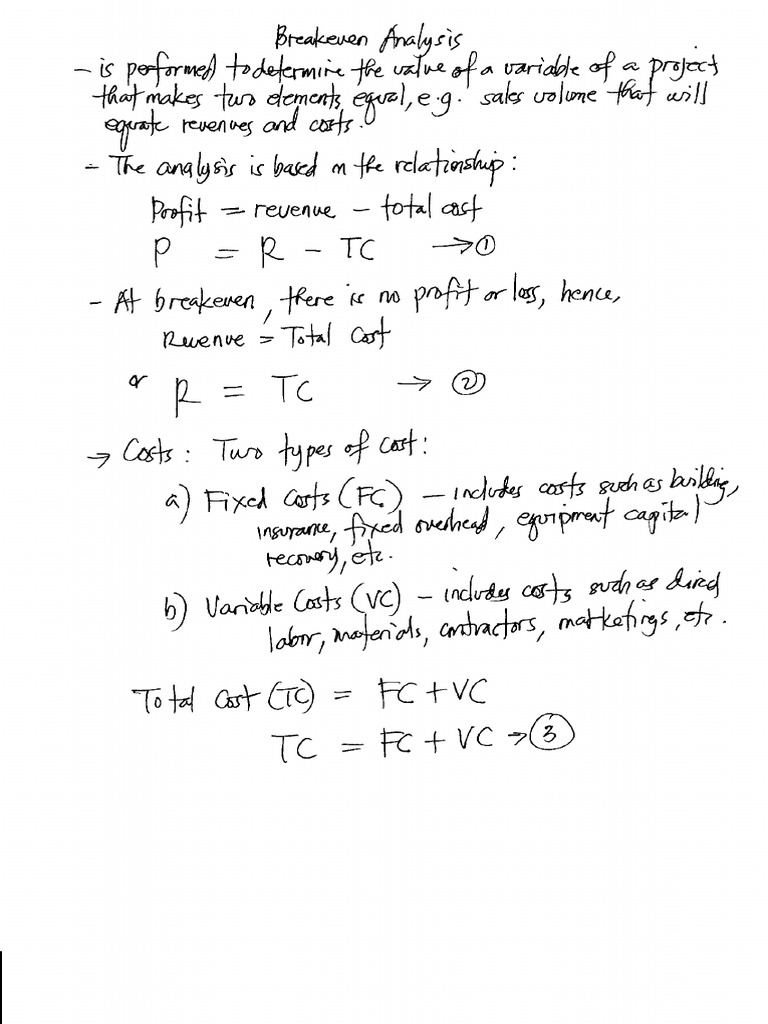 Breakeven Analysis
- is performed to determine the value of a variable of a project
that makes two elements equal, e.g. sales volume that will
equate revenues and costs.
- The analysis is based on the relationship:
Profit = revenue - total cost
P = R - TC → ①
- At breakeven, there is no profit or loss, hence,
Revenue = Total Cost
or R = TC → ②
→ Costs: Two types of cost:
a) Fixed Costs (FC) - includes costs such as building,
insurance, fixed overhead, equipment capital
recovery, etc.
b) Variable Costs (VC) - includes costs such as direct
labor, materials, contractors, marketings, etc.
Total Cost (TC) = FC + VC
TC = FC + VC → ③